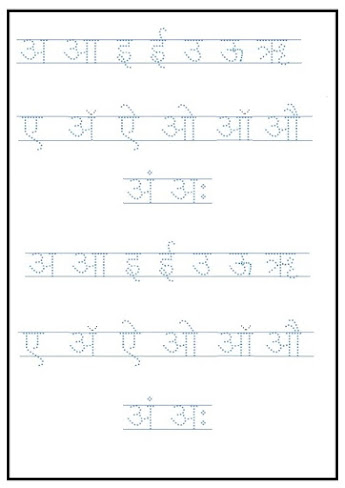 अ आ इ ई उ ऊ ऋ
ए ॲ ऐ ओ ऑ औ
अं अः
अ आ इ ई उ ऊ ऋ
ए ॲ ऐ ओ ऑ औ
अं अः